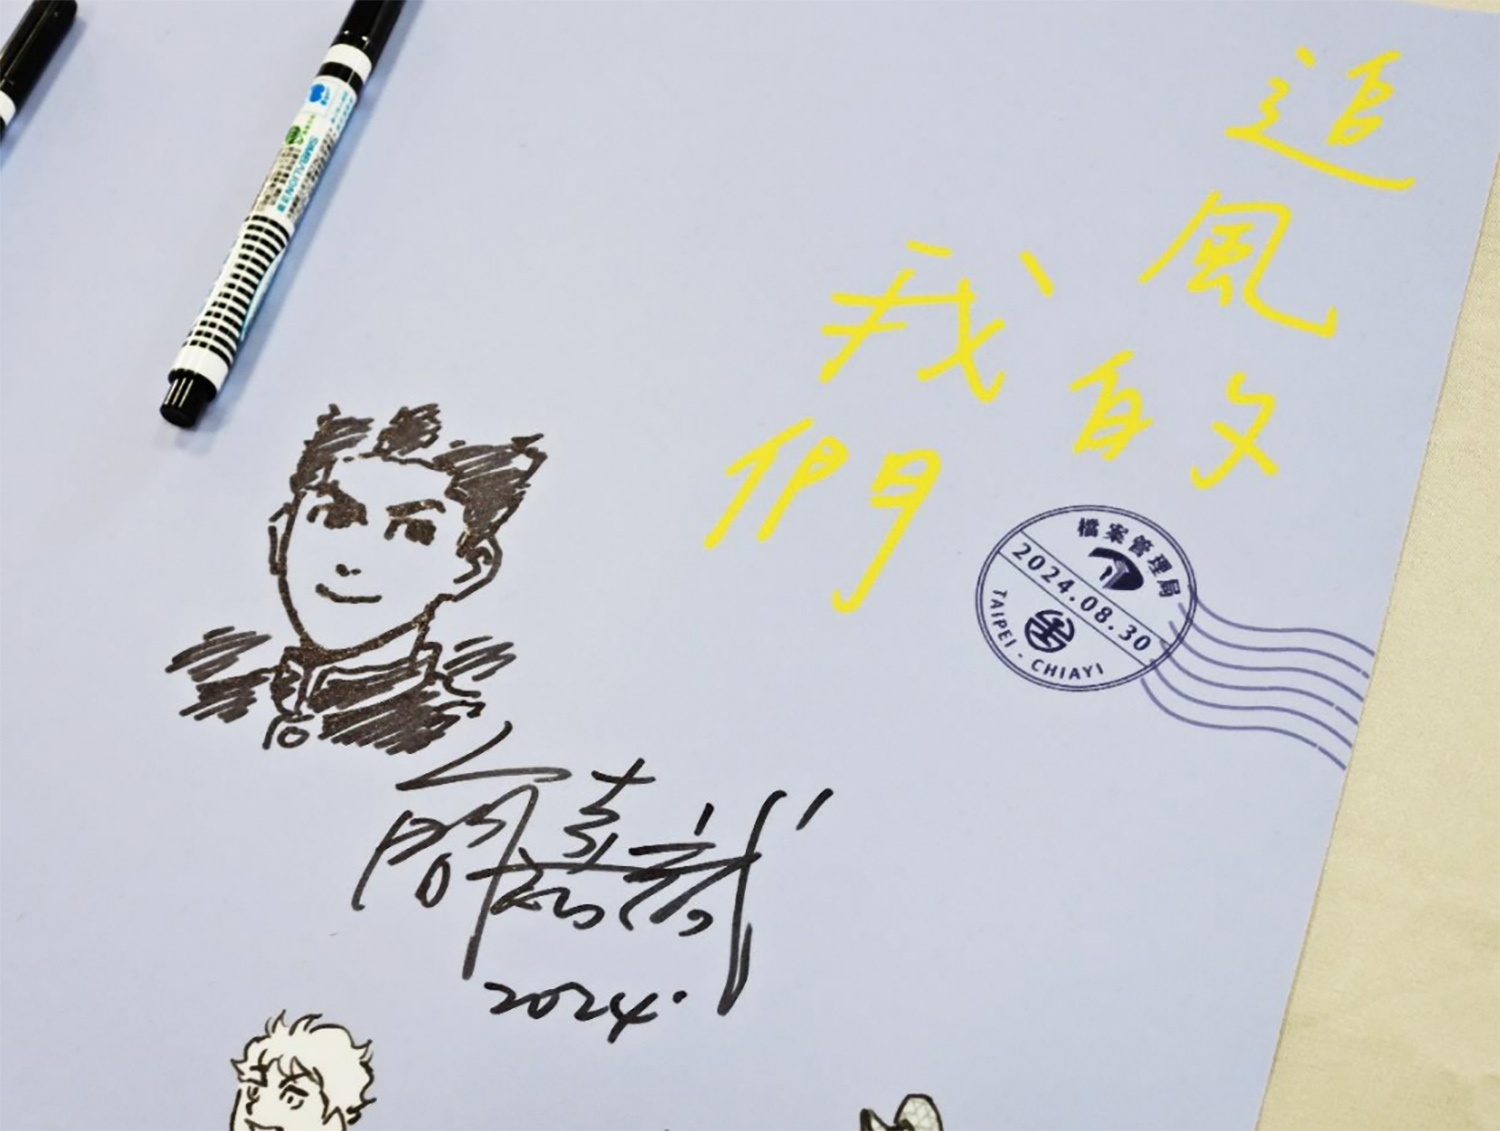 追風的
我們
檔案管理局
2024.08.30
TAIPEI - CHIAYI
簡嘉誠
2024.
SIMBALION